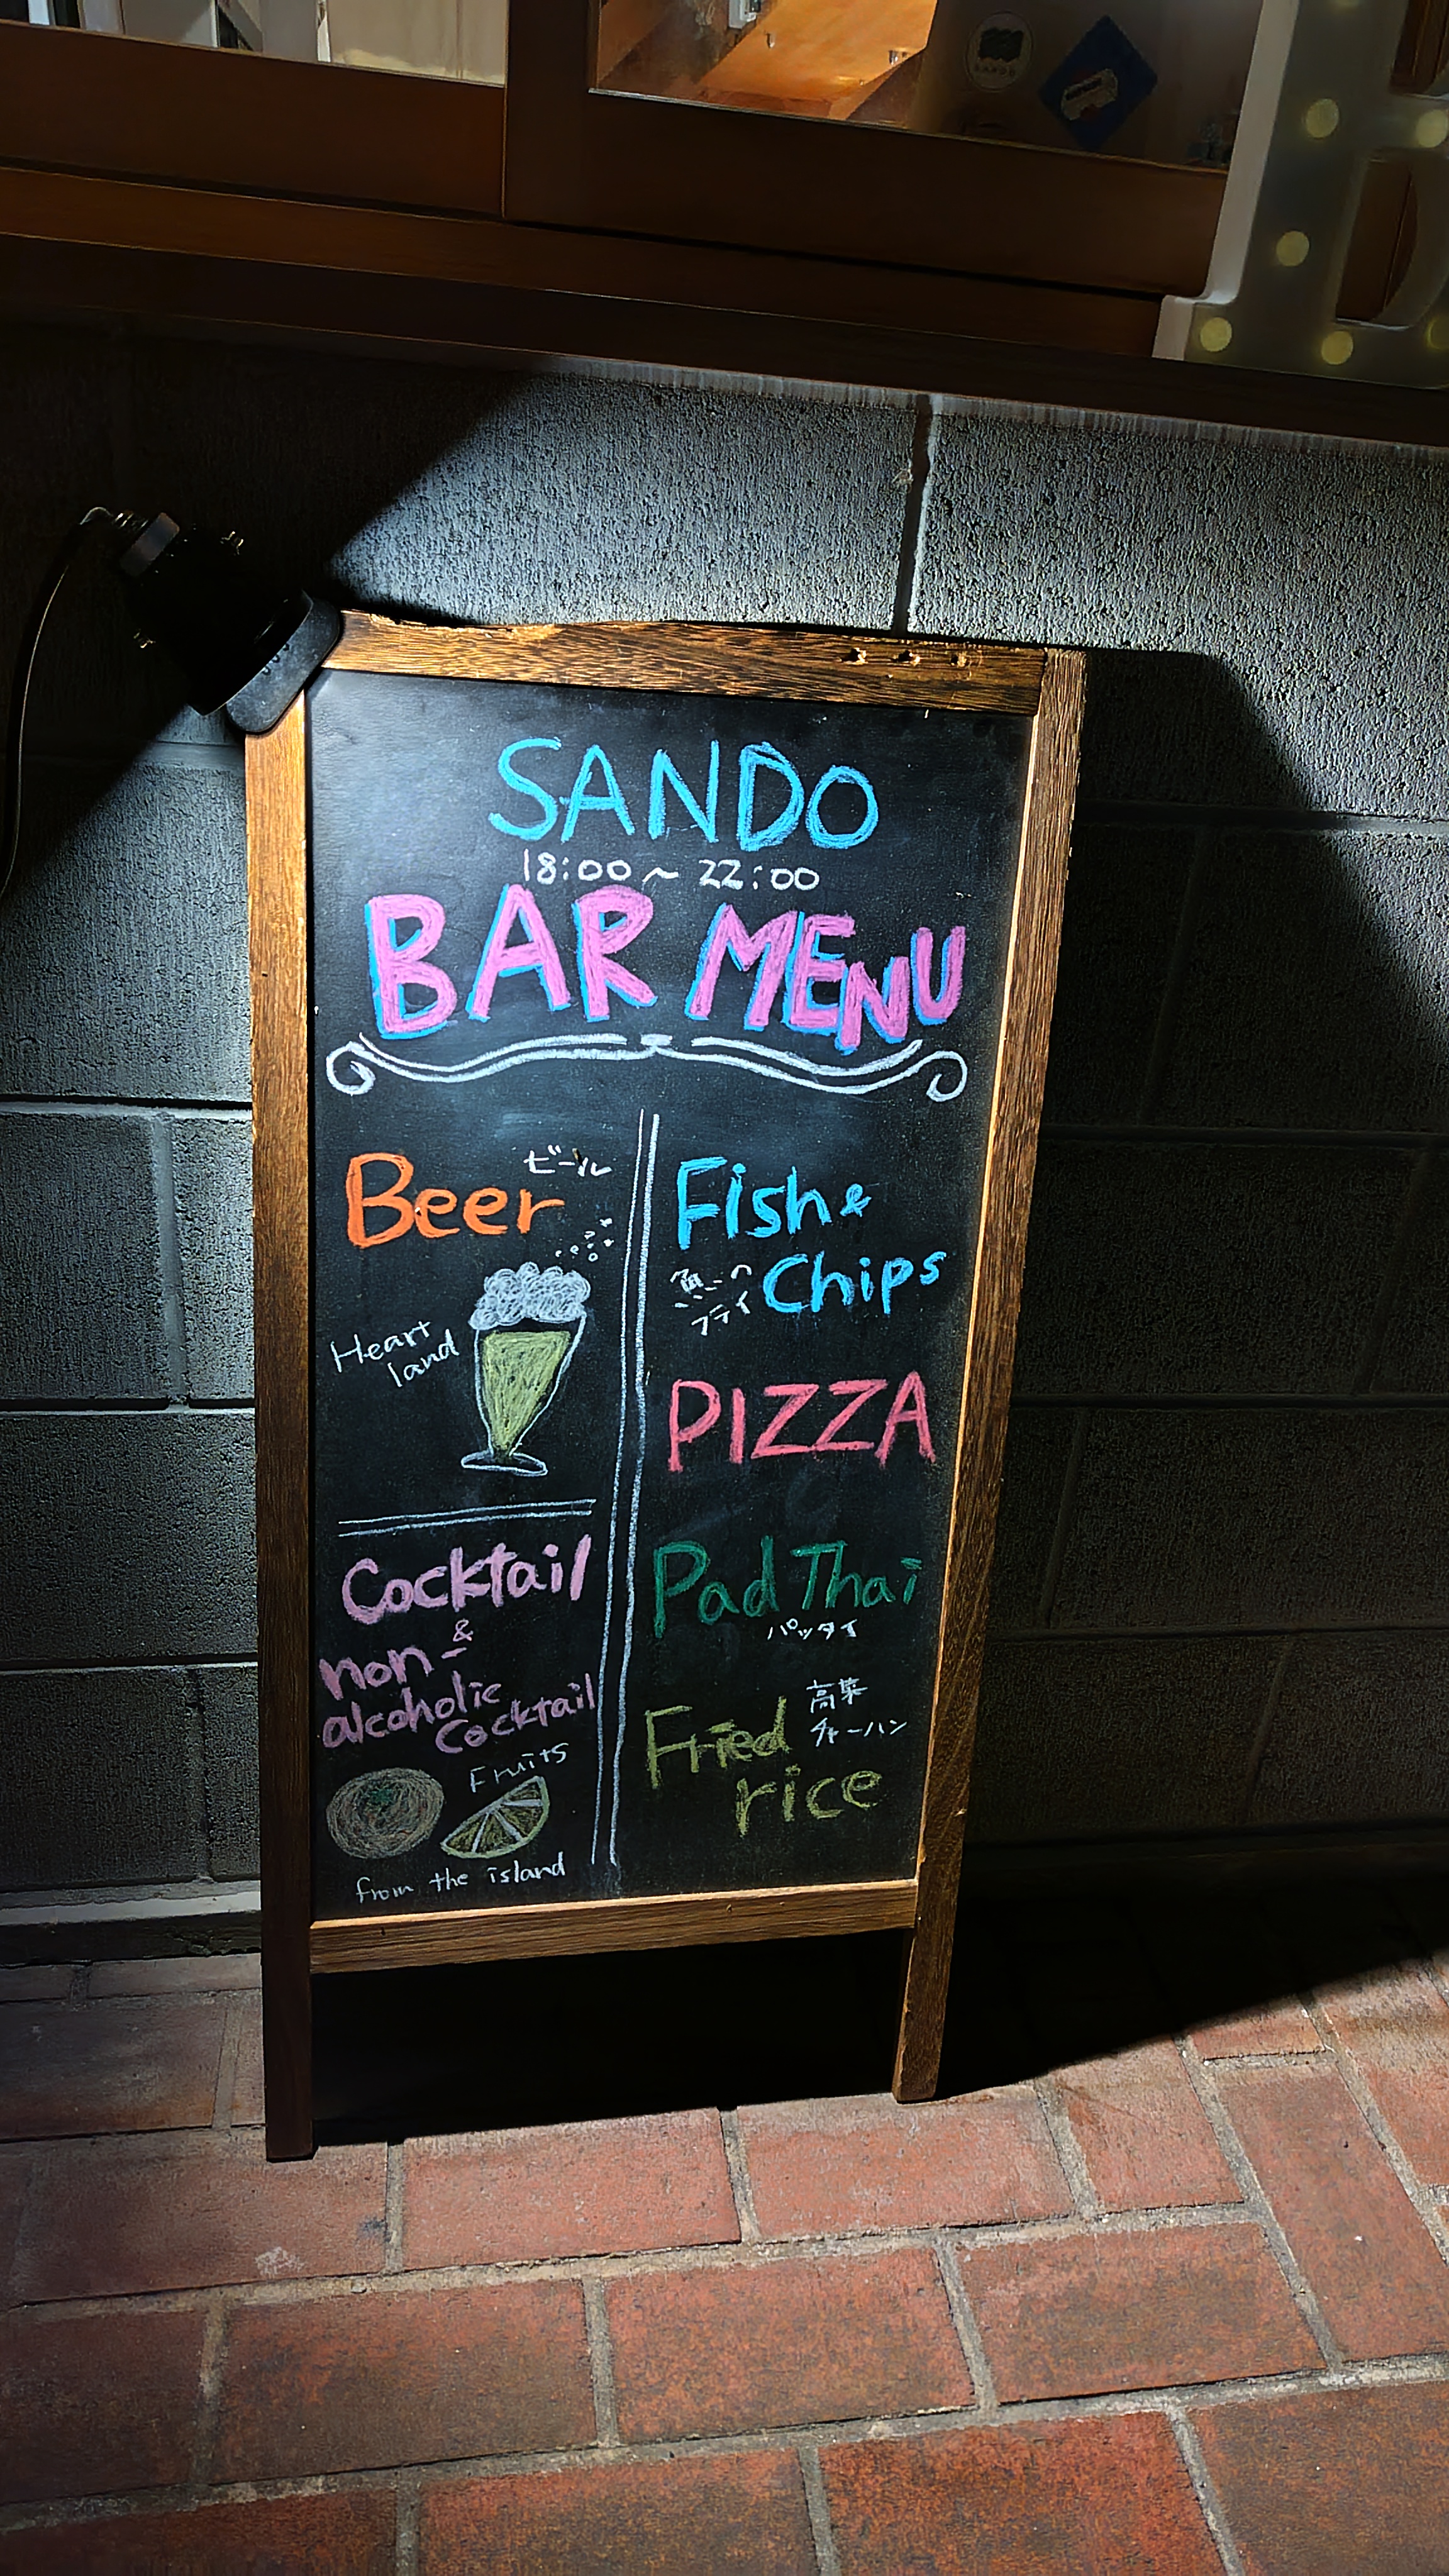 SANDO
18:00～22:00
BAR MENU
Beer
ビール
Heart
land
Cocktail
&
non-
alcoholic
Cocktail
Fruits
from the island
Fish &
Chips
魚の
フライ
PIZZA
Pad Thai
パッタイ
Fried
rice
高菜
チャーハン